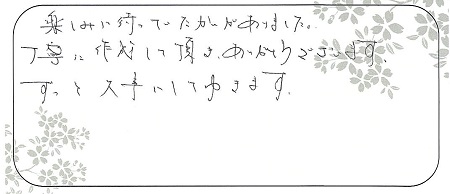 楽しみに待っていたかいがありました。
丁寧に作成して頂き、ありがとうございます。
ずっと大事にしてゆきます。